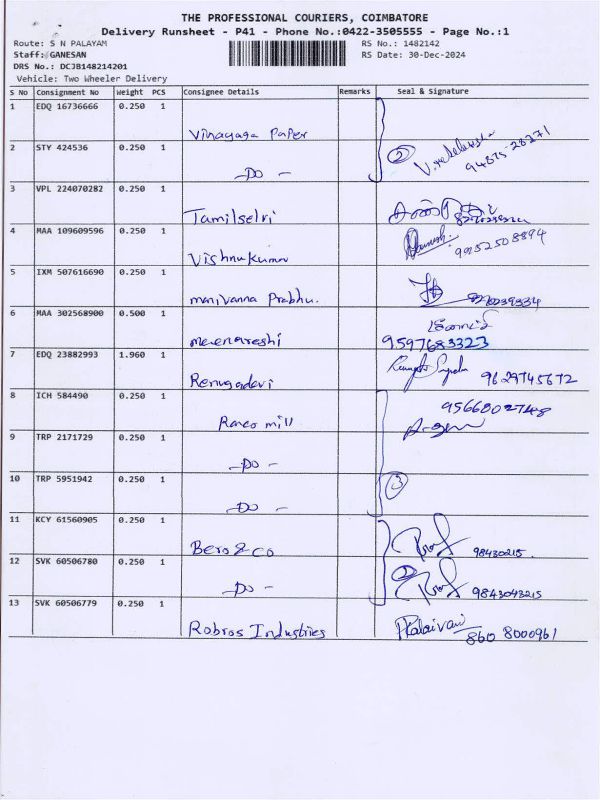 THE PROFESSIONAL COURIERS, COIMBATORE
Delivery Runsheet - P41 - Phone No.:0422-3505555 - Page No.:1
Route: S N PALAYAM RS No.: 1482142
Staff: GANESAN RS Date: 30-Dec-2024
DRS No.: DCJB148214201
Vehicle: Two Wheeler Delivery
S No Consignment No Weight PCS Consignee Details Remarks Seal & Signature
1 EDQ 16736666 0.250 1
Vinayaga Paper
2 STY 424536 0.250 1
-DO - 2 94875-28271
3 VPL 224070282 0.250 1
Tamilselvi
4 MAA 109609596 0.250 1
Vishnukumar 9952508894
5 IXM 507616690 0.250 1
manivanna Prabhu.
6 MAA 302568900 0.500 1
meenakeshi 9597683323
7 EDQ 23882993 1.960 1
Renugadevi 9629745672
8 ICH 584490 0.250 1 9566802748
Raneo mill
9 TRP 2171729 0.250 1
-DO -
10 TRP 5951942 0.250 1 3
-DO -
11 KCY 61560905 0.250 1
Bero & co 98430215.
12 SVK 60506780 0.250 1 2
-DO - 9843043215
13 SVK 60506779 0.250 1
Robros Industries Kalaivani 860 8000961